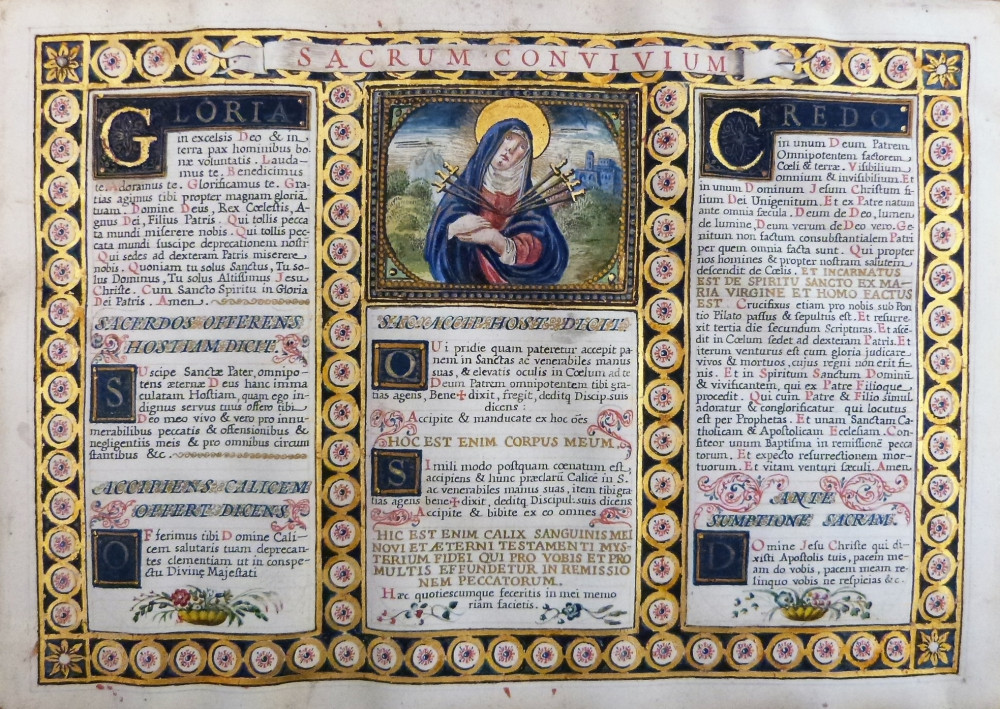 SACRUM CONVIVIUM
GLORIA
in excelsis Deo & in
terra pax hominibus bo
næ voluntatis. Lauda-
mus te. Benedicimus
te. Adoramus te. Glorificamus te. Gra-
tias agimus tibi propter magnam gloria
tuam. Domine Deus, Rex Cœlestis, A-
gnus Dei, Filius Patris. Qui tollis pecca
ta mundi miserere nobis. Qui tollis pec-
cata mundi suscipe deprecationem nostr
Qui sedes ad dexteram Patris miserere
nobis. Quoniam tu solus Sanctus, Tu so-
lus Dominus, Tu solus Altissimus Jesu
Christe. Cum Sancto Spiritu in Gloria
Dei Patris. Amen.
SACERDOS OFFERENS
HOSTIAM DICIT
Suscipe Sanctæ Pater, omnipo
tens æternæ Deus hanc imma
culatam Hostiam, quam ego in-
dignus servus tuus offero tibi
Deo meo vivo & vero pro innu-
merabilibus peccatis & offensionibus &
negligentiis meis & pro omnibus circum
stantibus &c.
ACCIPIENS CALICEM
OFFERT DICENS
Offerimus tibi Domine Cali-
cem salutaris tuam deprecan-
tes clementiam ut in conspe-
ctu Divinę Majestati
SAC. ACCIP. HOST. DICIT.
QUi pridie quam pateretur accepit pa
nem in Sanctas ac venerabiles manus
suas, & elevatis oculis in Cœlum ad te
Deum Patrem omnipotentem tibi gra-
tias agens, Bene+dixit, fregit, deditq Discip. suis
dicens:
Accipite & manducate ex hoc oēs
HOC EST ENIM CORPUS MEUM.
SImili modo postquam cœnatum est,
accipiens & hunc præclarū Calicē in S.
ac venerabiles manus suas, item tibi gra
tias agens bene+dixit, deditq Discipul. suis dicens
Accipite & bibite ex eo omnes
HIC EST ENIM CALIX SANGUINIS MEI
NOVI ET ÆTERNI TESTAMENTI MYS-
TERIUM FIDEI, QUI PRO VOBIS ET PRO
MULTIS EFFUNDETUR IN REMISSIO
NEM PECCATORUM.
Hæc quotiescumque feceritis in mei memo
riam facietis.
CREDO
in unum Deum Patrem
Omnipotentem factorem
Cœli & terræ, Visibilium
omnium & invisibilium. Et
in unum Dominum Jesum Christum fi-
lium Dei Unigenitum. Et ex Patre natum
ante omnia sæcula. Deum de Deo, lumen
de lumine, Deum verum de Deo vero. Ge-
nitum non factum consubstantialem Patri
per quem omnia facta sunt. Qui propter
nos homines & propter nostram salutem
descendit de Cœlis. ET INCARNATUS
EST DE SPIRITU SANCTO EX MA-
RIA VIRGINE ET HOMO FACTUS
EST. Crucifixus etiam pro nobis sub Pon
tio Pilato passus & sepultus est. Et resurre-
xit tertia die secundum Scripturas. Et ascē-
dit in Cœlum sedet ad dexteram Patris. Et
iterum venturus est cum gloria judicare
vivos & mortuos, cujus regni non erit fi-
nis. Et in Spiritum Sanctum Dominū
& vivificantem, qui ex Patre Filioque
procedit. Qui cum Patre & Filio simul
adoratur & conglorificatur qui locutus
est per Prophetas. Et unam Sanctam Ca-
tholicam & Apostolicam Ecclesiam. Con-
fiteor unum Baptisma in remissionē pecca
torum. Et expecto resurrectionem mor-
tuorum. Et vitam venturi sæculi. Amen.
ANTE
SUMPTIONE SACRAM.
Domine Jesu Christe qui di-
xisti Apostolis tuis, pacem me-
am do vobis, pacem meam re-
linquo vobis ne respicias &c.